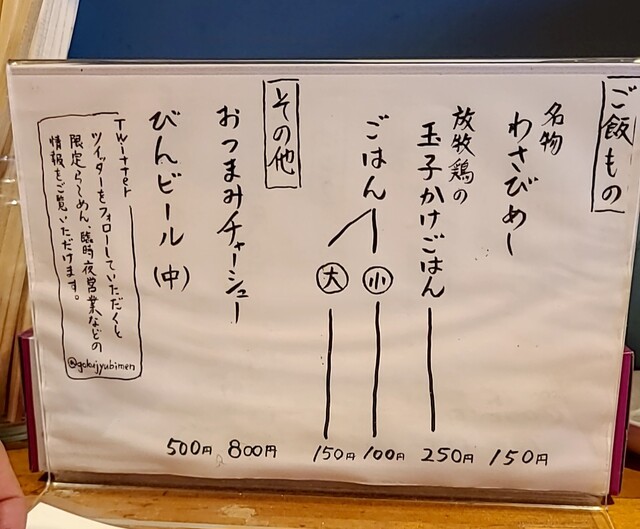 ご飯もの
名物
わさびめし
150円
放牧鶏の
玉子かけごはん
250円
ごはん
小
100円
大
150円
その他
おつまみチャーシュー
800円
びんビール(中)
500円
Twitter
ツイッターをフォローしていただくと
限定らーめん、臨時夜営業などの
情報をご覧いただけます。
@gokujyubimen